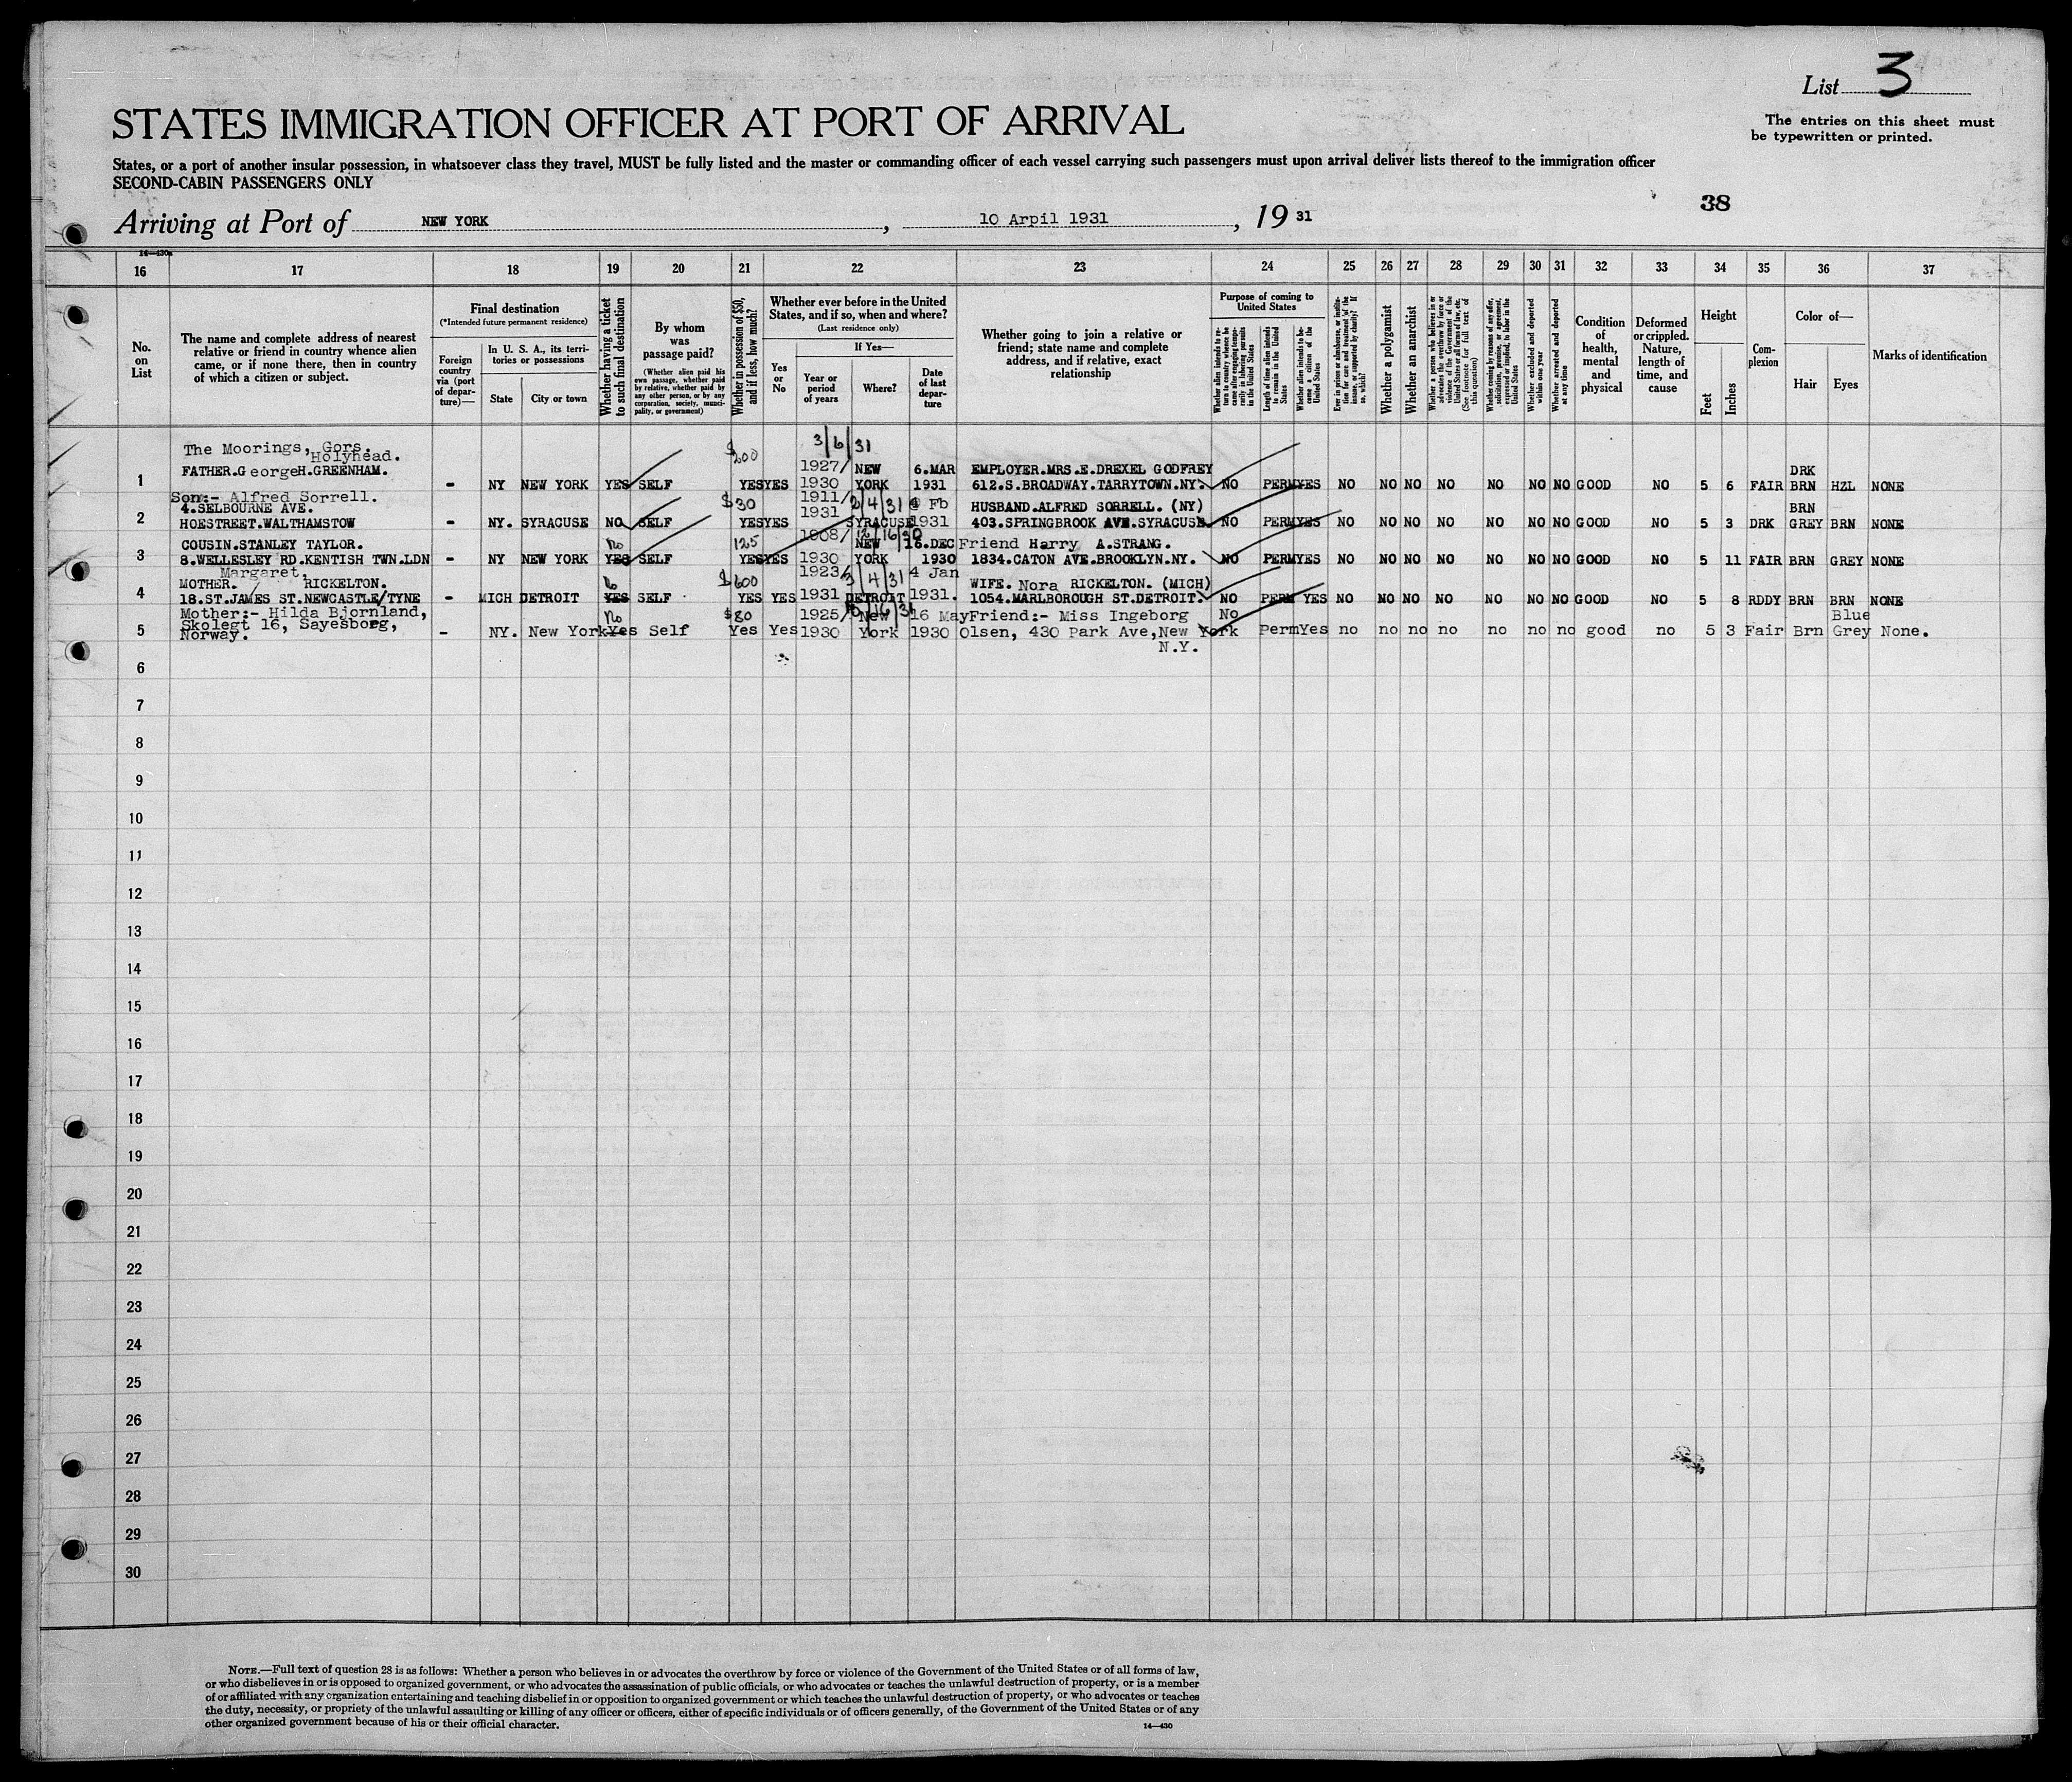 List 3
The entries on this sheet must
be typewritten or printed.
STATES IMMIGRATION OFFICER AT PORT OF ARRIVAL
States, or a port of another insular possession, in whatsoever class they travel, MUST be fully listed and the master or commanding officer of each vessel carrying such passengers must upon arrival deliver lists thereof to the immigration officer
SECOND-CABIN PASSENGERS ONLY
38
Arriving at Port of NEW YORK, 10 Arpil 1931, 19 31
14—430a
16 17 18 19 20 21 22 23 24 25 26 27 28 29 30 31 32 33 34 35 36 37
No. on List
The name and complete address of nearest
relative or friend in country whence alien
came, or if none there, then in country
of which a citizen or subject.
Final destination
(*Intended future permanent residence)
Foreign country via (port of departure)—
In U. S. A., its territories or possessions
State
City or town
Whether having a ticket to such final destination
By whom was passage paid?
(Whether alien paid his own passage, whether paid by relative, whether paid by any other person, or by any corporation, society, municipality, or government)
Whether in possession of $50, and if less, how much?
Whether ever before in the United States, and if so, when and where?
(Last residence only)
Yes or No
If Yes—
Year or period of years
Where?
Date of last departure
Whether going to join a relative or
friend; state name and complete
address, and if relative, exact
relationship
Purpose of coming to United States
Whether alien intends to return to country whence he came after engaging temporarily in laboring pursuits in the United States
Length of time alien intends to remain in the United States
Whether alien intends to become a citizen of the United States
Ever in prison or almshouse, or institution for care and treatment of the insane, or supported by charity? If so, which?
Whether a polygamist
Whether an anarchist
Whether a person who believes in or advocates the overthrow by force or violence of the Government of the United States or all forms of law, etc. (See footnote for full text of this question)
Whether coming by reasons of any offer, solicitation, promise, or agreement, expressed or implied, to labor in the United States
Whether excluded and deported within one year
Whether arrested and deported at any time
Condition of health, mental and physical
Deformed or crippled. Nature, length of time, and cause
Height
Feet
Inches
Complexion
Color of—
Hair
Eyes
Marks of identification
The Moorings, Gors, Holyhead. $200 3/6/31
FATHER.GeorgeH.GREENHAM. 1927/ NEW 6.MAR EMPLOYER.MRS.E.DREXEL GODFREY DRK
1 - NY NEW YORK YES SELF YES YES 1930 YORK 1931 612.S.BROADWAY.TARRYTOWN.NY. NO PERM YES NO NO NO NO NO NO NO GOOD NO 5 6 FAIR BRN HZL NONE
Son:- Alfred Sorrell.
4.SELBOURNE AVE. $30 1911/ 2/4/31 Fb HUSBAND.ALFRED SORRELL. (NY) BRN
2 HOESTREET.WALTHAMSTOW - NY. SYRACUSE NO SELF YES YES 1931 SYRACUSE 1931 403.SPRINGBROOK AVE.SYRACUSE NO PERM YES NO NO NO NO NO NO NO GOOD NO 5 3 DRK GREY BRN NONE
COUSIN.STANLEY TAYLOR. No 125 1908/ 12/16/30 NEW 16.DEC Friend Harry A.STRANG.
3 8.WELLESLEY RD.KENTISH TWN.LDN - NY NEW YORK YES SELF YES YES 1930 YORK 1930 1834.CATON AVE.BROOKLYN.NY. NO PERM YES NO NO NO NO NO NO NO GOOD NO 5 11 FAIR BRN GREY NONE
Margaret,
MOTHER. RICKELTON. No $600 1923/ 3/4/31 4 Jan WIFE. Nora RICKELTON. (MICH)
4 18.ST.JAMES ST.NEWCASTLE/TYNE - MICH DETROIT YES SELF YES YES 1931 DETROIT 1931. 1054.MARLBOROUGH ST.DETROIT. NO PERM YES NO NO NO NO NO NO NO GOOD NO 5 8 RDDY BRN BRN NONE
Mother:- Hilda Bjornland, No $80 1925/ New 16 May Friend:- Miss Ingeborg No Blue
5 Skolegt 16, Sayesborg, Norway. - NY. New York Yes Self Yes Yes 1930 York 1930 Olsen, 430 Park Ave,New York N.Y. Perm Yes no no no no no no no good no 5 3 Fair Brn Grey None.
6
7
8
9
10
11
12
13
14
15
16
17
18
19
20
21
22
23
24
25
26
27
28
29
30
NOTE.—Full text of question 28 is as follows: Whether a person who believes in or advocates the overthrow by force or violence of the Government of the United States or of all forms of law,
or who disbelieves in or is opposed to organized government, or who advocates the assassination of public officials, or who advocates or teaches the unlawful destruction of property, or is a member
of or affiliated with any organization entertaining and teaching disbelief in or opposition to organized government or which teaches the unlawful destruction of property, or who advocates or teaches
the duty, necessity, or propriety of the unlawful assaulting or killing of any officer or officers, either of specific individuals or of officers generally, of the Government of the United States or of any
other organized government because of his or their official character.
14—430